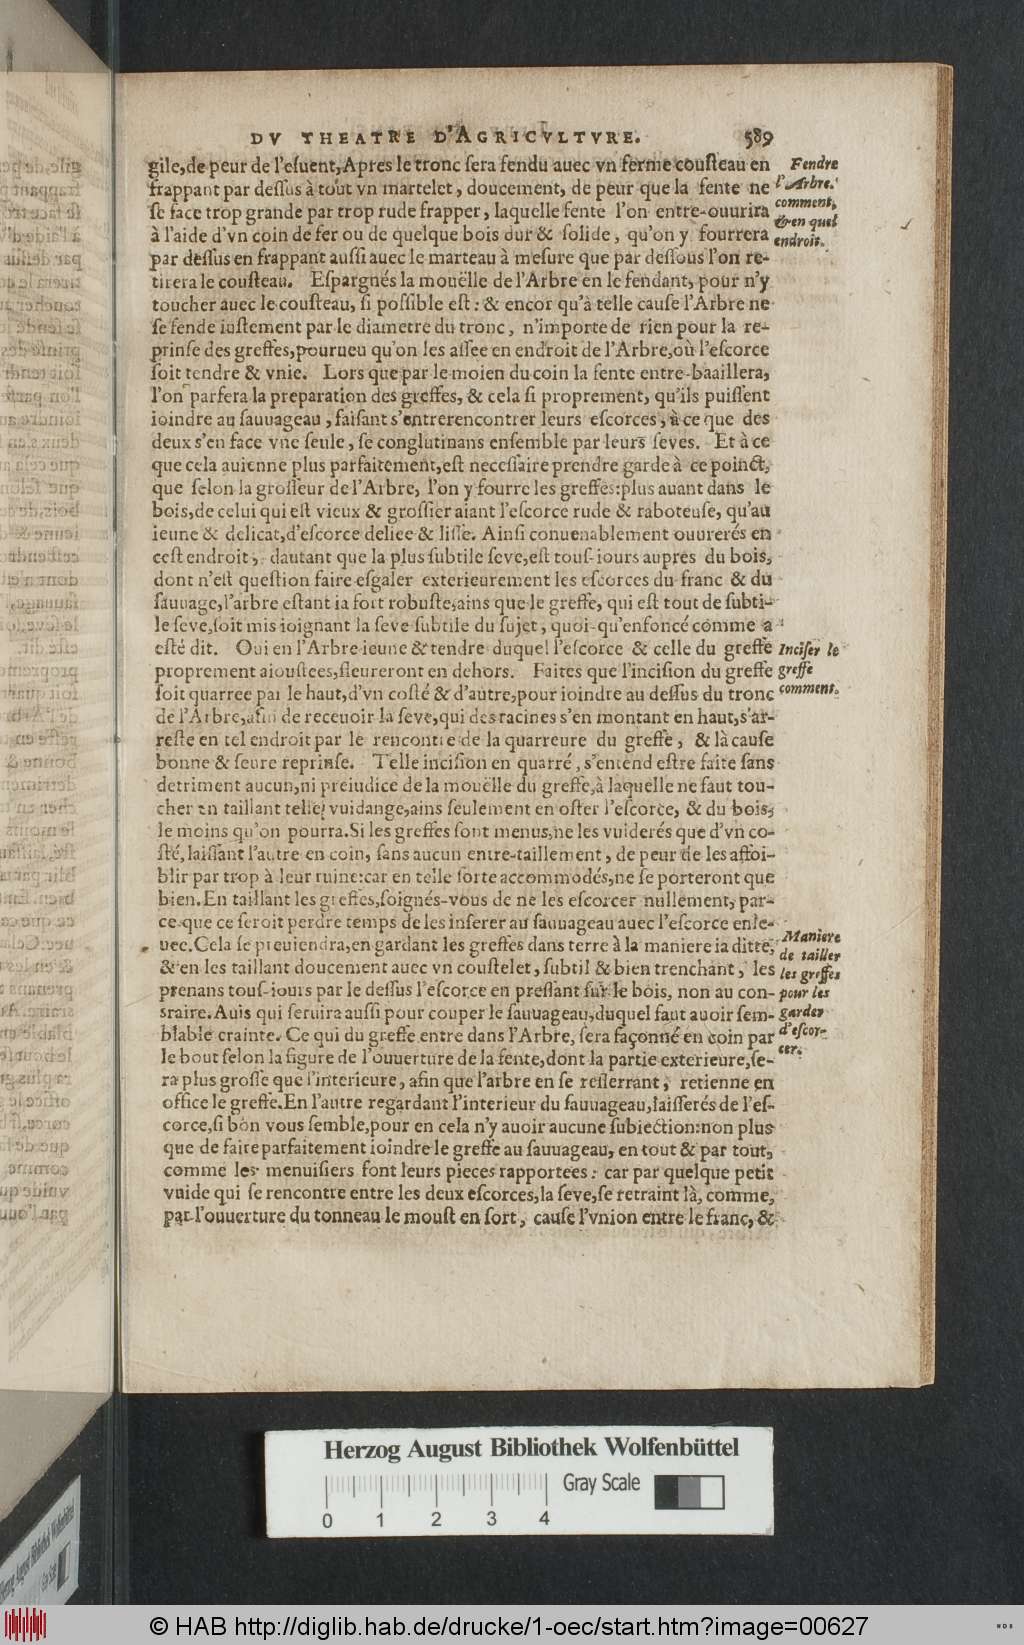 DV THEATRE D'AGRICVLTVRE. 589
gile, de peur de l'esuent, Apres le tronc sera fendu auec vn ferme cousteau en
frappant par dessus à tout vn martelet, doucement, de peur que la fente ne
se face trop grande par trop rude frapper, laquelle fente l'on entre-ouurira
à l'aide d'vn coin de fer ou de quelque bois dur & solide, qu'on y fourrera
par dessus en frappant aussi auec le marteau à mesure que par dessous l'on re-
tirera le cousteau. Espargnés la mouëlle de l'Arbre en le fendant, pour n'y
toucher auec le cousteau, si possible est: & encor qu'à telle cause l'Arbre ne
se fende iustement par le diametre du tronc, n'importe de rien pour la re-
prinse des greffes, pourueu qu'on les assee en endroit de l'Arbre, où l'escorce
soit tendre & vnie. Lors que par le moien du coin la fente entre-baaillera,
l'on parfera la preparation des greffes, & cela si proprement, qu'ils puissent
ioindre au sauuageau, faisant s'entrerencontrer leurs escorces, à ce que des
deux s'en face vne seule, se conglutinans ensemble par leurs seves. Et à ce
que cela auienne plus parfaitement, est necessaire prendre garde à ce poinct,
que selon la grosseur de l'Arbre, l'on y fourre les greffes: plus auant dans le
bois, de celui qui est vieux & grossier aiant l'escorce rude & raboteuse, qu'au
ieune & delicat, d'escorce deliee & lisse. Ainsi conuenablement ouurerés en
cest endroit, dautant que la plus subtile seve, est tous-iours aupres du bois,
dont n'est question faire esgaler exterieurement les escorces du franc & du
sauuage, l'arbre estant ia fort robuste, ains que le greffe, qui est tout de subti-
le seve, soit mis ioignant la seve subtile du sujet, quoi-qu'enfoncé comme a
esté dit. Oui en l'Arbre ieune & tendre duquel l'escorce & celle du greffe
proprement aioustees, fleureront en dehors. Faites que l'incision du greffe
soit quarree par le haut, d'vn costé & d'autre, pour ioindre au dessus du tronc
de l'Arbre, afin de receuoir la seve, qui des racines s'en montant en haut, s'ar-
reste en tel endroit par le rencontre de la quarreure du greffe, & là cause
bonne & seure reprinse. Telle incision en quarré, s'entend estre faite sans
detriment aucun, ni preiudice de la mouëlle du greffe, à laquelle ne faut tou-
cher en taillant telle vuidange, ains seulement en oster l'escorce, & du bois,
le moins qu'on pourra. Si les greffes sont menus, ne les vuiderés que d'vn co-
sté, laissant l'autre en coin, sans aucun entre-taillement, de peur de les affoi-
blir par trop à leur ruine: car en telle sorte accommodés, ne se porteront que
bien. En taillant les greffes, soignés-vous de ne les escorcer nullement, par-
ce que ce seroit perdre temps de les inserer au sauuageau auec l'escorce enle-
uee. Cela se preuiendra, en gardant les greffes dans terre à la maniere ia ditte,
& en les taillant doucement auec vn coustelet, subtil & bien trenchant, les
prenans tous-iours par le dessus l'escorce en pressant sur le bois, non au con-
sraire. Auis qui seruira aussi pour couper le sauuageau, duquel faut auoir sem-
blable crainte. Ce qui du greffe entre dans l'Arbre, sera façonné en coin par
le bout selon la figure de l'ouuerture de la fente, dont la partie exterieure, se-
ra plus grosse que l'interieure, afin que l'arbre en se resserrant, retienne en
office le greffe. En l'autre regardant l'interieur du sauuageau, laisserés de l'es-
corce, si bon vous semble, pour en cela n'y auoir aucune subiection: non plus
que de faire parfaitement ioindre le greffe au sauuageau, en tout & par tout,
comme les menuisiers font leurs pieces rapportees: car par quelque petit
vuide qui se rencontre entre les deux escorces, la seve, se retraint là, comme,
par l'ouuerture du tonneau le moust en sort, cause l'vnion entre le franc, &
Fendre
l'Arbre.
comment,
& en quel
endroit.
Inciser le
greffe
comment.
Maniere
de tailler
les greffes
pour les
garder
d'escor-
cer.
Herzog August Bibliothek Wolfenbüttel
Gray Scale
0 1 2 3 4
© HAB http://diglib.hab.de/drucke/1-oec/start.htm?image=00627